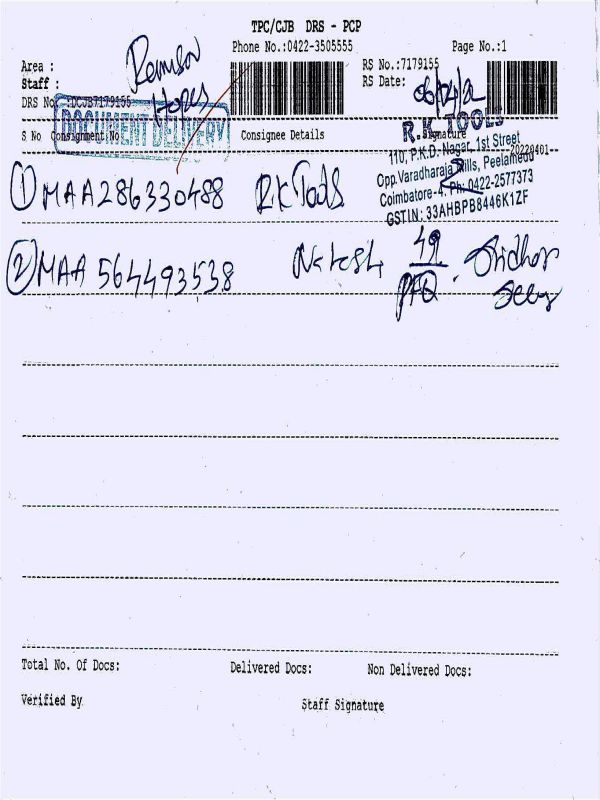 TPC/CJB DRS - PCP
Phone No.:0422-3505555 Page No.:1
Area : RS No.:7179155
Staff : RS Date: 06/04/22
DRS No. :DCJB7179155 Hopes
DOCUMENT DELIVERY
S No Consignment No Consignee Details Signature
20220401
R.K TOOLS
110, P.K.D. Nagar, 1st Street
Opp.Varadharaja Mills, Peelamedu
Coimbatore-4. Ph: 0422-2577373
GSTIN: 33AHBPB8446K1ZF
① MAA286330488 RK Tools
② MAA 564493538 49
Total No. Of Docs: Delivered Docs: Non Delivered Docs:
Verified By Staff Signature